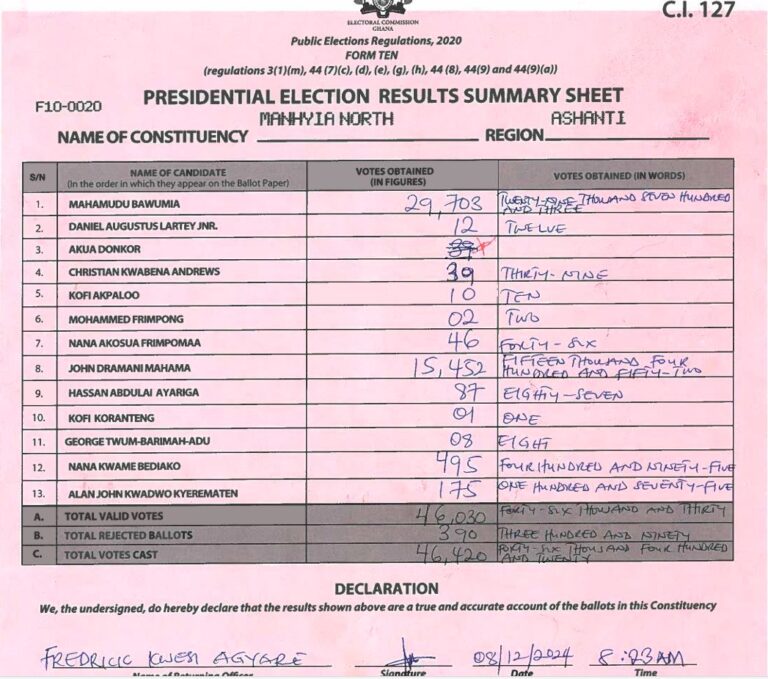 C.I. 127
ELECTORAL COMMISSION
GHANA
Public Elections Regulations, 2020
FORM TEN
(regulations 3(1)(m), 44 (7)(c), (d), (e), (g), (h), 44 (8), 44(9) and 44(9)(a))
F10-0020
PRESIDENTIAL ELECTION RESULTS SUMMARY SHEET
NAME OF CONSTITUENCY MANHYIA NORTH REGION ASHANTI
S/N NAME OF CANDIDATE (In the order in which they appear on the Ballot Paper) VOTES OBTAINED (IN FIGURES) VOTES OBTAINED (IN WORDS)
1. MAHAMUDU BAWUMIA 29,703 TWENTY-NINE THOUSAND SEVEN HUNDRED AND THREE
2. DANIEL AUGUSTUS LARTEY JNR. 12 TWELVE
3. AKUA DONKOR
4. CHRISTIAN KWABENA ANDREWS 39 THIRTY-NINE
5. KOFI AKPALOO 10 TEN
6. MOHAMMED FRIMPONG 02 TWO
7. NANA AKOSUA FRIMPOMAA 46 FORTY-SIX
8. JOHN DRAMANI MAHAMA 15,452 FIFTEEN THOUSAND FOUR HUNDRED AND FIFTY-TWO
9. HASSAN ABDULAI AYARIGA 87 EIGHTY-SEVEN
10. KOFI KORANTENG 01 ONE
11. GEORGE TWUM-BARIMAH-ADU 08 EIGHT
12. NANA KWAME BEDIAKO 495 FOUR HUNDRED AND NINETY-FIVE
13. ALAN JOHN KWADWO KYEREMATEN 175 ONE HUNDRED AND SEVENTY-FIVE
A. TOTAL VALID VOTES 46,030 FORTY-SIX THOUSAND AND THIRTY
B. TOTAL REJECTED BALLOTS 390 THREE HUNDRED AND NINETY
C. TOTAL VOTES CAST 46,420 FORTY-SIX THOUSAND FOUR HUNDRED AND TWENTY
DECLARATION
We, the undersigned, do hereby declare that the results shown above are a true and accurate account of the ballots in this Constituency
FREDRICK KWESI AGYARE 08/12/2024 8:23AM
Name of Returning Officer Signature Date Time